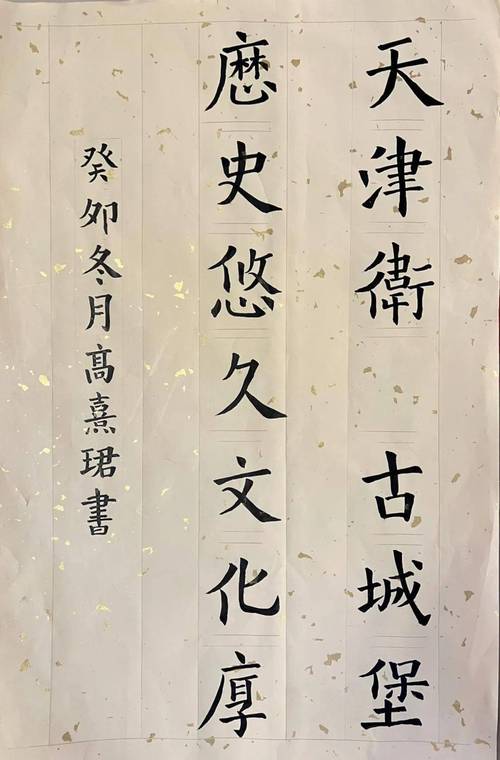 天津衛 古城堡
歷史悠久文化厚
癸卯冬月高熹珺書